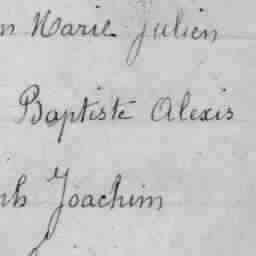 n Marie Julien
Baptiste Alexis
ph Joachim